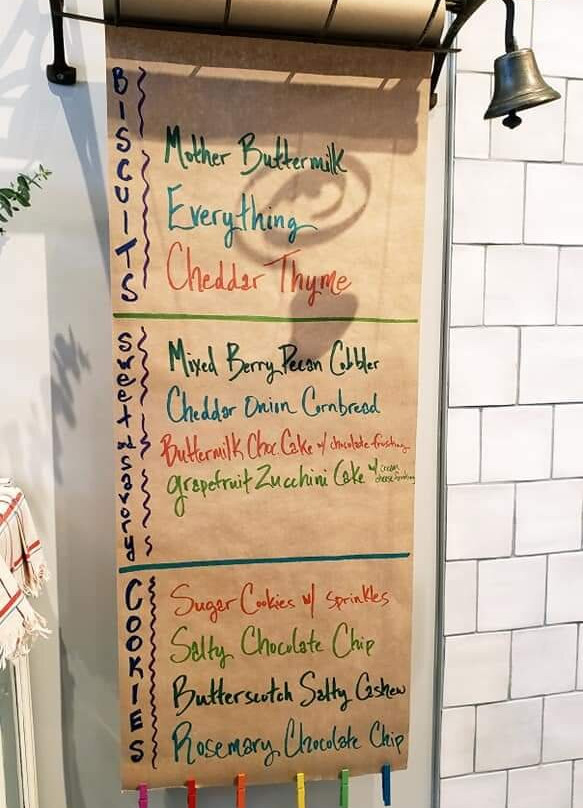 BISCUITS
Mother Buttermilk
Everything
Cheddar Thyme
Sweet and Savory
Mixed Berry Pecan Cobbler
Cheddar Onion Cornbread
Buttermilk Choc. Cake w/ chocolate frosting
Grapefruit Zucchini Cake w/ cream cheese frosting
COOKIES
Sugar Cookies w/ sprinkles
Salty Chocolate Chip
Butterscotch Salty Cashew
Rosemary Chocolate Chip